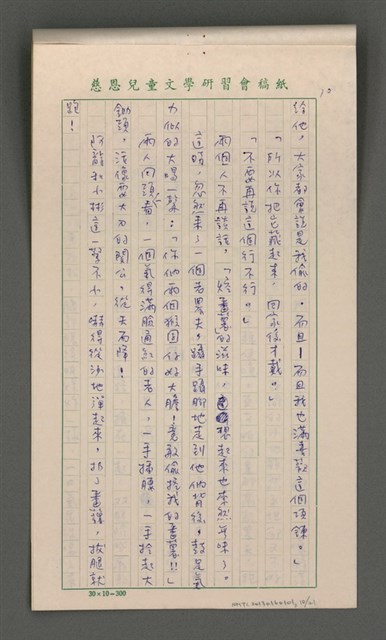 慈恩兒童文學研習會稿紙
10
給他，大家都會說是我偷的，而且－而且我也滿喜歡這個項鍊。」
「所以你把它藏起來，回家後才戴。」
「不要再說這個行不行。」
兩個人不再談話，「烤蕃薯的滋味，想起來也索然無味）。
這時，忽然來了一個老農夫，躡手躡腳地走到他們背後，鼓足氣
力似的大喝一聲：「你們兩個猴囝仔好大膽，竟敢偷挖我的蕃薯!!」
兩人回頭看，一個氣得滿臉通紅的老人，一手插腰，一手拎起大
鋤頭，活像耍大刀的關公，從天而降！
阿龍和小彬這一驚不小，嚇得從沙地彈起來，扔了蕃薯，拔腿就
跑！
20×10=300